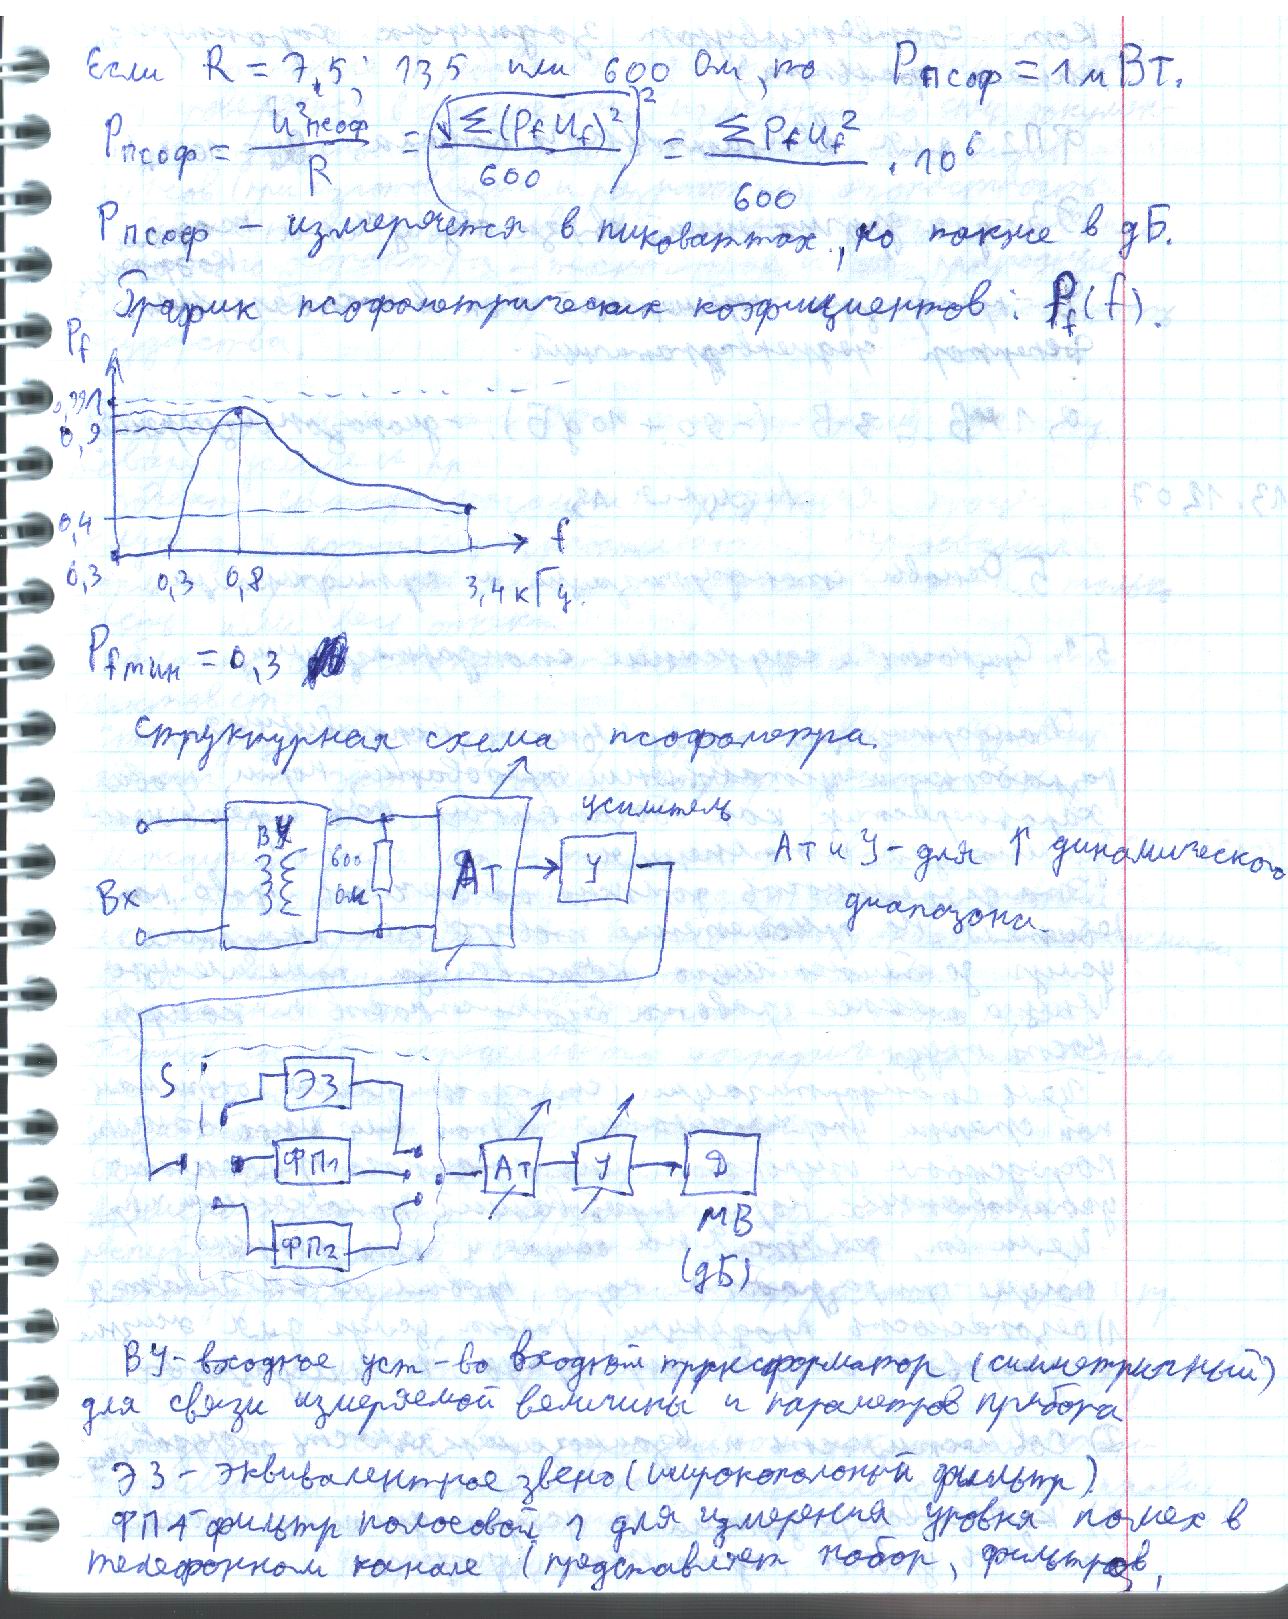 Если R = 7,5; 135 или 600 Ом, то Pпсоф = 1 мВт.
Pпсоф = U²псоф / R = (√Σ(Pf Uf)² / 600)² = Σ Pf Uf² / 600 · 10⁶
Pпсоф – измеряется в пиковаттах, но также в дБ.
График псофометрических коэфициентов: Pf(f).
Pf
0,9
0,4
f
0,3 0,3 0,8 3,4 кГц.
Pf мин = 0,3
Структурная схема псофометра.
усилитель
ВУ 600 Ом Ат У
Вх
Ат и У – для ↑ динамического
диапазона.
S ЭЗ
ФП1 Ат У Д
мВ
ФП2 (дБ)
ВУ – входное уст-во входной трансформатор (симметричный)
для связи измеряемой величины и параметров прибора
ЭЗ – эквивалентное звено (широкополоный фильтр)
ФП1 – фильтр полосовой 1 для измерения уровня помех в
телефонном канале (представляет набор, фильтров,